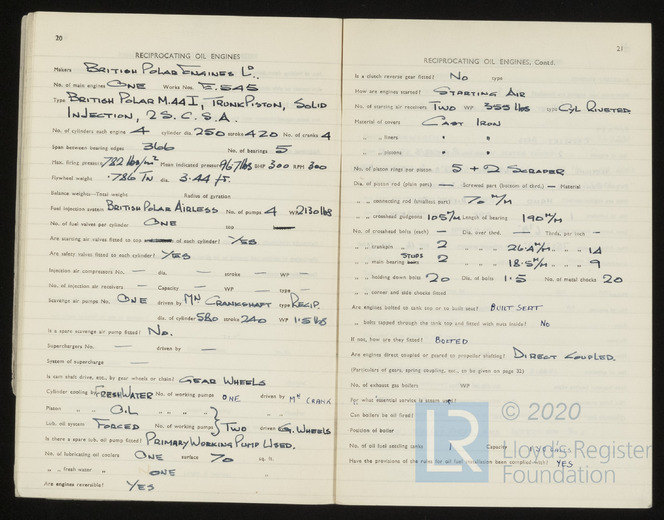 20
RECIPROCATING OIL ENGINES
Makers BRITISH POLAR ENGINES Lᴰ..
No. of main engines ONE Works Nos. E.545
Type BRITISH POLAR M.44 I, TRUNK PISTON, SOLID
INJECTION, 2 S. C. S. A.
No. of cylinders each engine 4 cylinder dia. 250 stroke 420 No. of cranks 4
Span between bearing edges 366 No. of bearings 5
Max. firing pressure 782 lbs/in² Mean indicated pressure 96.7 lbs BHP 300 RPM 300
Flywheel weight .786 TN dia. 3.44 ft.
Balance weights—Total weight Radius of gyration
Fuel injection system BRITISH POLAR AIRLESS No. of pumps 4 WP 2130 lbs
No. of fuel valves per cylinder ONE top
Are starting air valves fitted to top of each cylinder? YES
Are safety valves fitted to each cylinder? YES
Injection air compressors No. — dia. — stroke — WP —
No. of injection air receivers — Capacity — WP —
Scavenge air pumps No. ONE driven by MN CRANKSHAFT type RECIP.
dia. of cylinder 580 stroke 240 WP 1.5 lbs
Is a spare scavenge air pump fitted? NO.
Superchargers No. — driven by —
System of supercharge —
Is cam shaft drive, etc., by gear wheels or chain? GEAR WHEELS
Cylinder cooling by FRESH WATER No. of working pumps ONE driven by MN CRANK
Piston „ „ OIL „ „ „ „
Lub. oil system FORCED No. of working pumps TWO driven GR. WHEELS
Is there a spare lub. oil pump fitted? PRIMARY WORKING PUMP USED.
No. of lubricating oil coolers ONE surface 70 sq. ft.
„ „ fresh water „ ONE „
Are engines reversible? YES
21
RECIPROCATING OIL ENGINES, Contd.
Is a clutch reverse gear fitted? NO type
How are engines started? STARTING AIR
No. of starting air receivers TWO WP 355 lbs type CYL RIVETED
Material of covers CAST IRON
„ „ liners " "
„ „ pistons " "
No. of piston rings per piston 5 + 2 SCRAPER
Dia. of piston rod (plain part) — Screwed part (bottom of thrd.) — Material
„ „ connecting rod (smallest part) 70 M/M
„ „ crosshead gudgeons 105 M/M Length of bearing 190 M/M
No. of crosshead bolts (each) — Dia. over thrd. — Thrds. per inch —
„ „ crankpin „ „ 2 „ „ „ 26.4 M/M „ „ „ 14
„ „ main bearing STUDS 2 „ „ „ 18.5 M/M „ „ „ 9
„ „ holding down bolts 20 Dia. of bolts 1.5 No. of metal chocks 20
„ „ corner and side chocks fitted
Are engines bolted to tank top or to built seat? BUILT SEAT
„ bolts tapped through the tank top and fitted with nuts inside? NO
If not, how are they fitted? BOLTED
Are engines direct coupled or geared to propeller shafting? DIRECT COUPLED.
(Particulars of gears, spring coupling, etc., to be given on page 32)
No. of exhaust gas boilers WP
For what essential service is steam used?
Can boilers be oil fired?
Position of boiler
No. of oil fuel settling tanks 1 Capacity GALLS
Have the provisions of the rules for oil fuel installation been complied with? YES
© 2020
LR
Lloyd's Register
Foundation